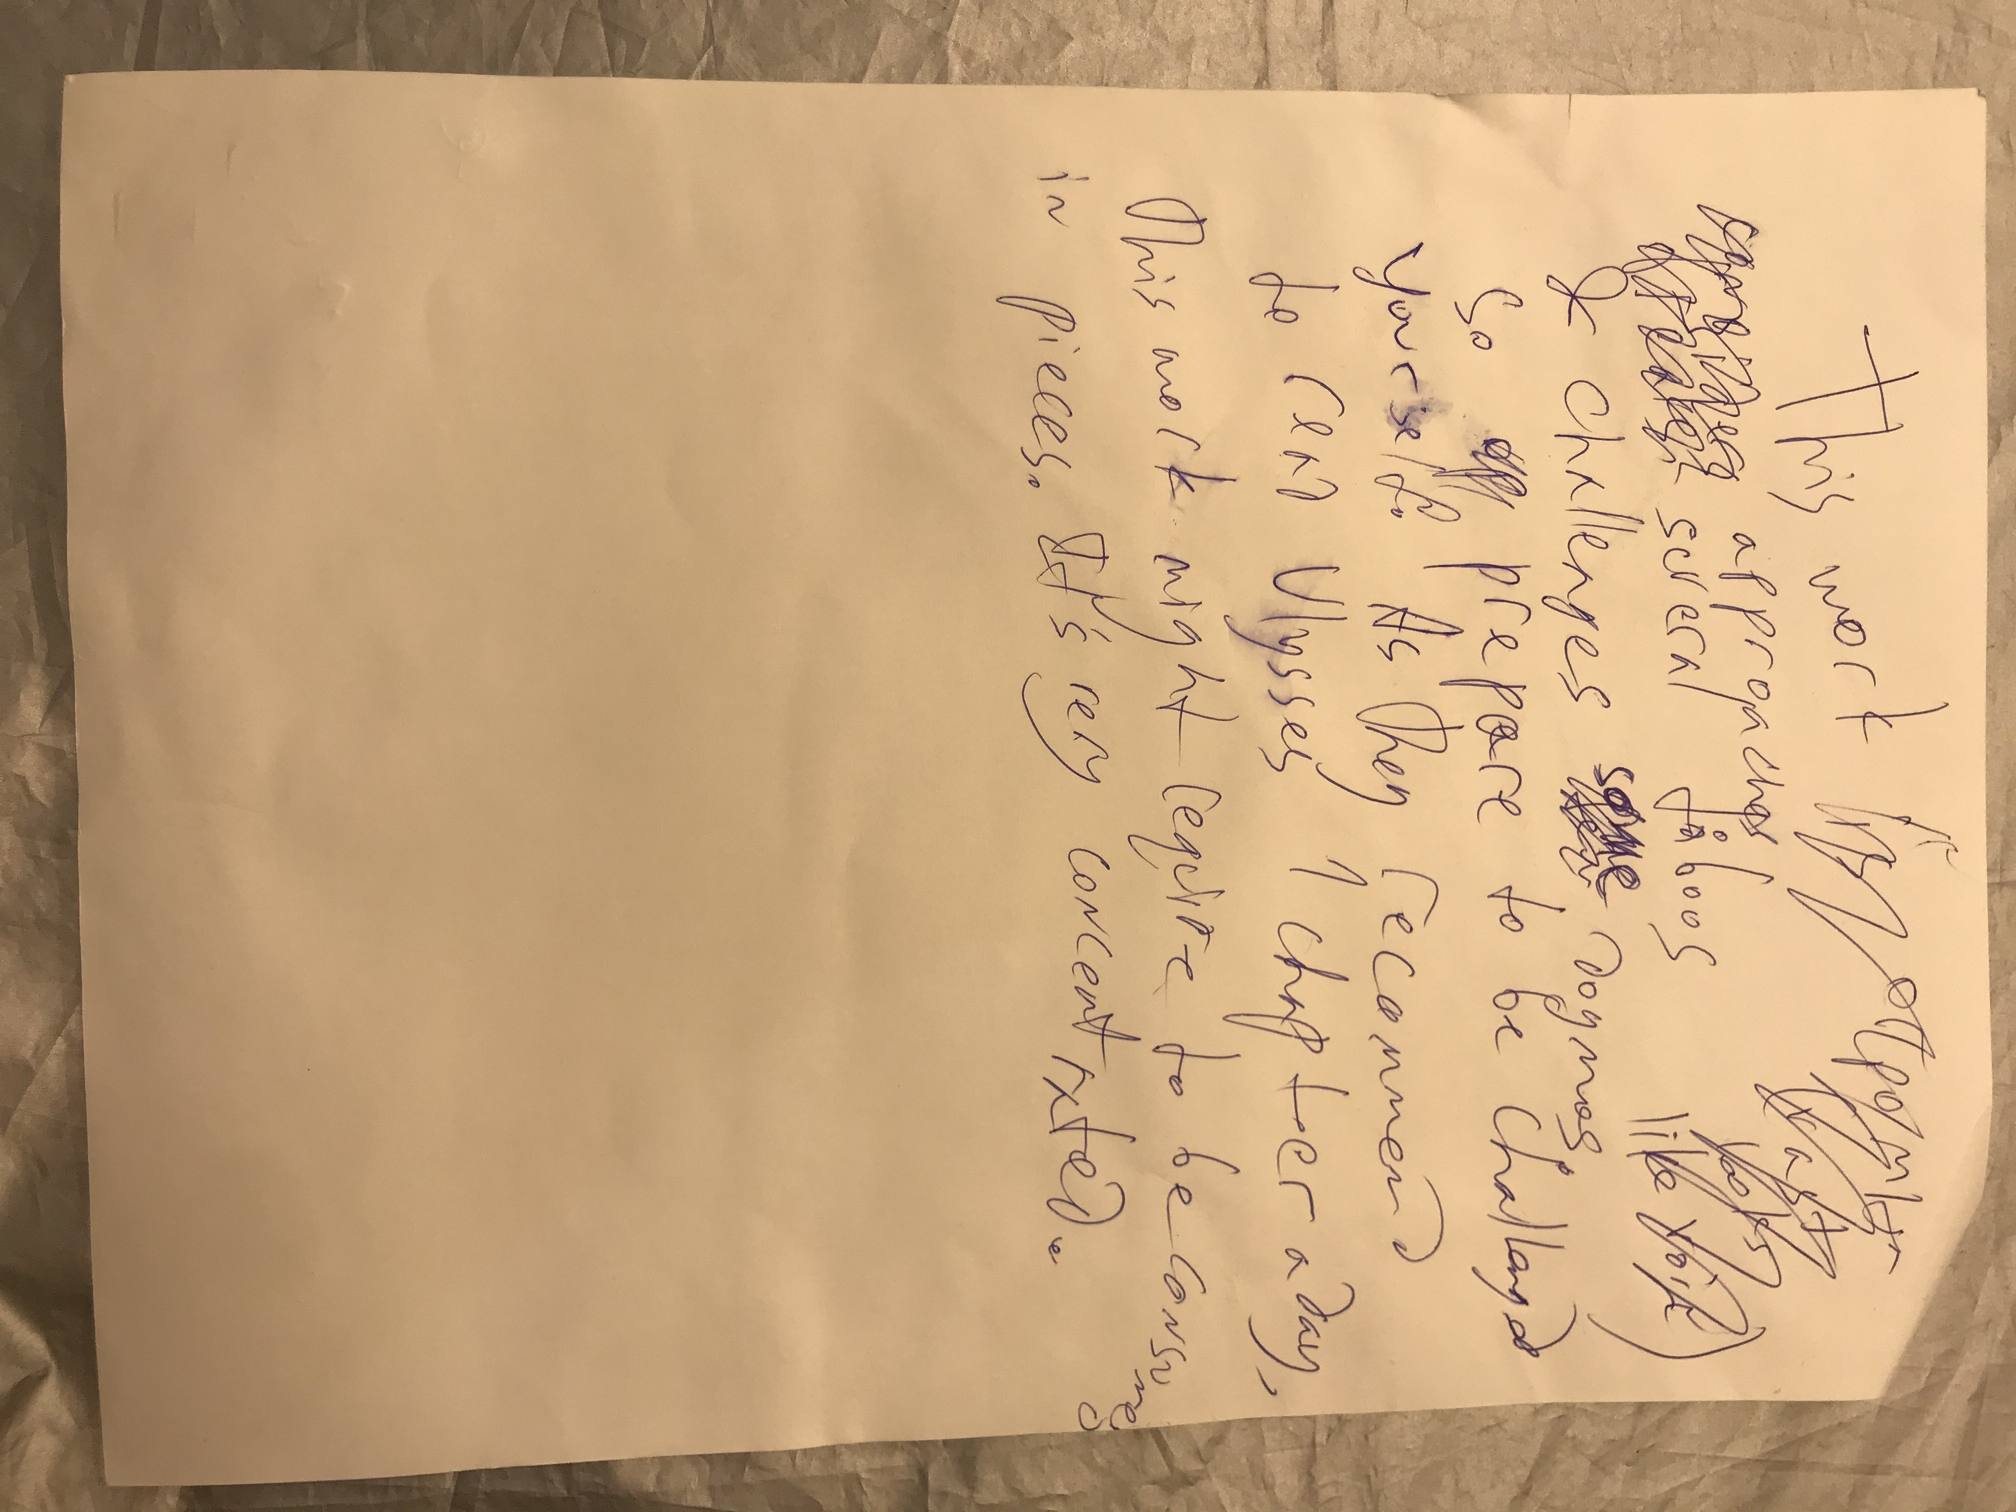 This work
approaches
several taboos like
& challenges some Dogmas
So prepare to be Challanged
yourself. As they recommend
to read Ulysses 1 chapter a day,
This work might require to be consumed
in pieces. It's very concentrated.